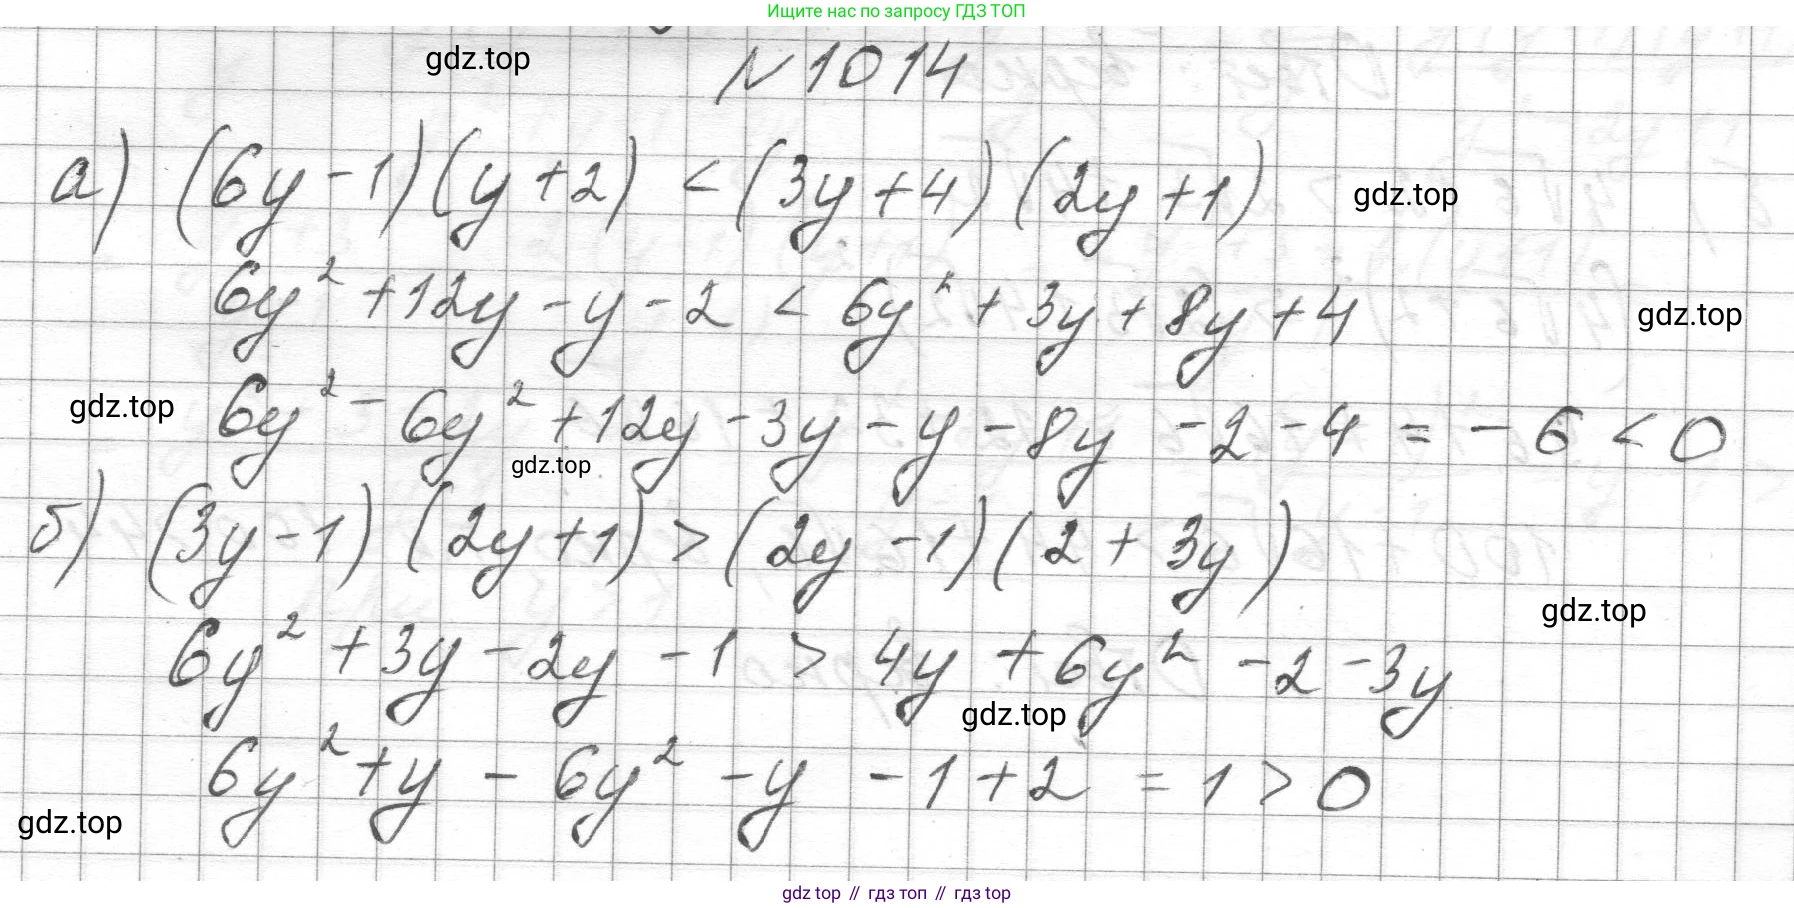 Ищите нас по запросу ГДЗ ТОП
gdz.top
N 1014
а) (6y - 1)(y + 2) < (3y + 4)(2y + 1)
gdz.top
6y² + 12y - y - 2 < 6y² + 3y + 8y + 4
gdz.top
gdz.top
6y² - 6y² + 12y - 3y - y - 8y - 2 - 4 = - 6 < 0
gdz.top
б) (3y - 1)(2y + 1) > (2y - 1)(2 + 3y)
gdz.top
6y² + 3y - 2y - 1 > 4y + 6y² - 2 - 3y
gdz.top
6y² + y - 6y² - y - 1 + 2 = 1 > 0
gdz.top
gdz top // гдз топ // gdz top